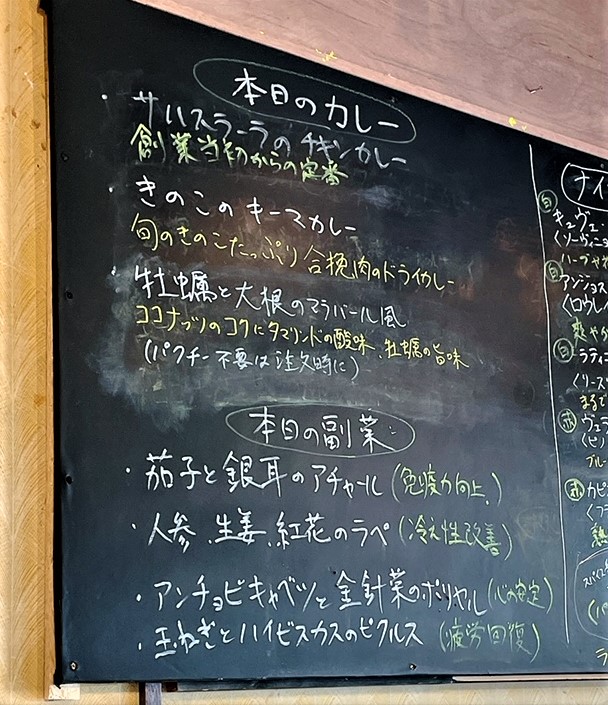 本日のカレー
・サハスラーラのチキンカレー
創業当初からの定番
・きのこのキーマカレー
旬のきのこたっぷり 合挽肉のドライカレー
・牡蠣と大根のマラバール風
ココナッツのコクにタマリンドの酸味、牡蠣の旨味
(パクチー不要は注文時に)
本日の副菜
・茄子と銀耳のアチャール (免疫力向上)
・人参、生姜、紅花のラペ (冷え性改善)
・アンチョビキャベツと金針菜のポリヤル (心の安定)
・玉ねぎとハイビスカスのピクルス (疲労回復)
ナイ
白 キュヴェ・
<ソーヴィニ
ハーブや
白 アンジョス
<ロウレ
爽やか
白 ラティ
<リース
まるで
赤 ヴェ
<ピノ
ブルー
赤 カピ